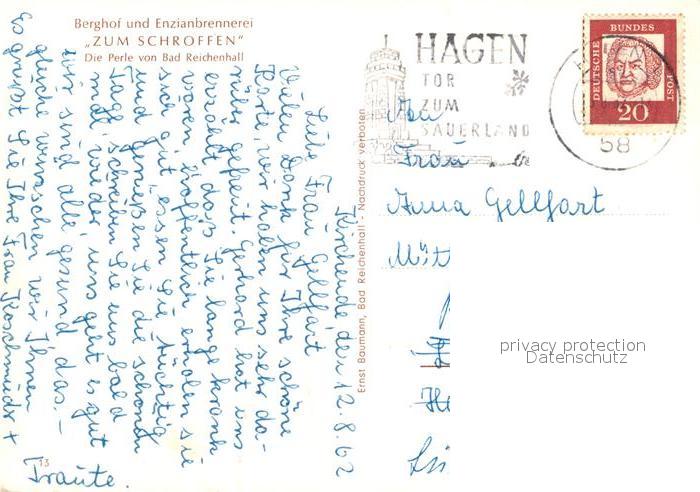 Berghof und Enzianbrennerei
„ZUM SCHROFFEN"
Die Perle von Bad Reichenhall
HAGEN
TOR
ZUM
SAUERLAND
DEUTSCHE BUNDES POST
20
58
An
Frau
Anna Gellfart
Mütt
privacy protection
Datenschutz
Ernst Baumann, Bad Reichenhall - Nachdruck verboten
Kirchende den 12.8.62
Liebe Frau Gellfart
Vielen Dank für Ihre schöne
Karte, wir haben uns sehr da-
rüber gefreut. Gerhard hat uns
erzählt daß Sie lange krank
waren. Hoffentlich erholen sie
sich gut, essen Sie tüchtig
und genießen Sie die schönen
Tage. schreiben Sie uns bald
mal wieder, uns geht es gut
wir sind alle gesund, das -
gleiche wünschen wir Ihnen
Es grüßt Sie Ihre Frau Koschmieder +
Traute.
13